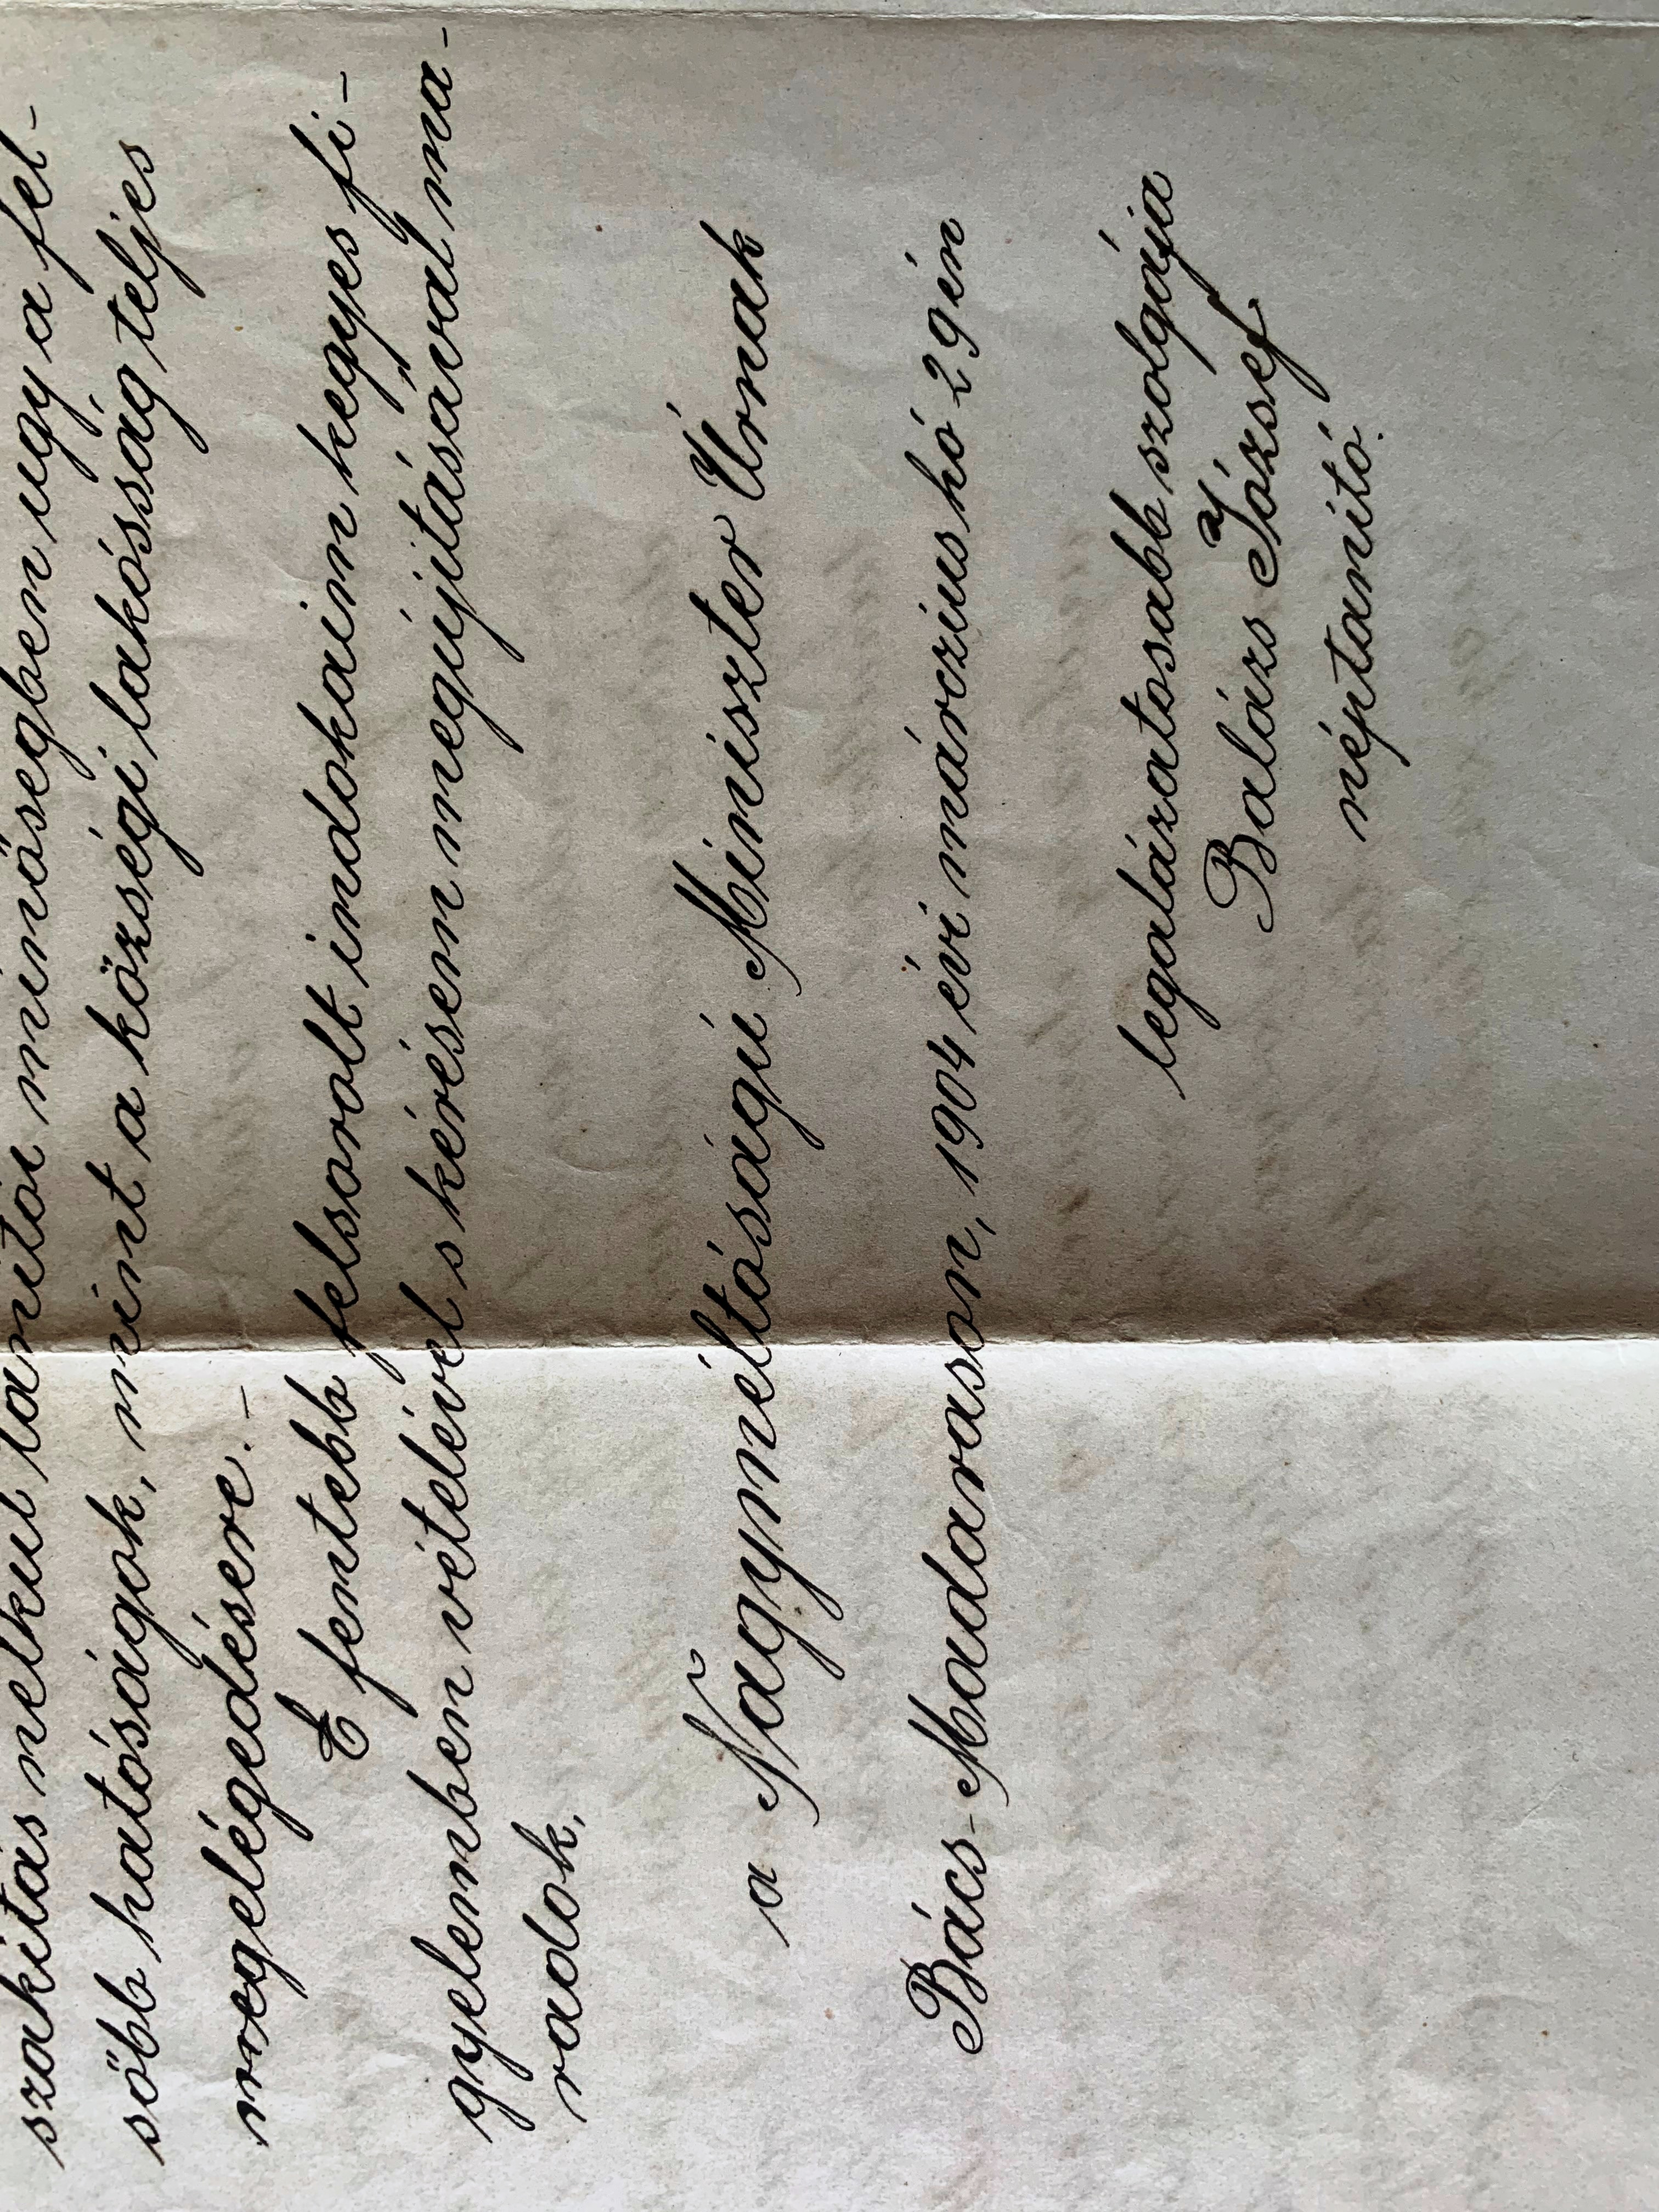 szakitás nélkül tanitói minőségben ugy a fel-
sőbb hatóságok, mint a községi lakósság teljes
megelégedésere. -
E fentebb felsorolt indokaim kegyes fi-
gyelemben vételével s kérésem megújitásával ma-
radok,
a Nagyméltóságú Miniszter Úrnak
Bács-Madarason, 1904 évi márczius hó 29én
legalázatosabb szolgája
Balázs József
néptanító.